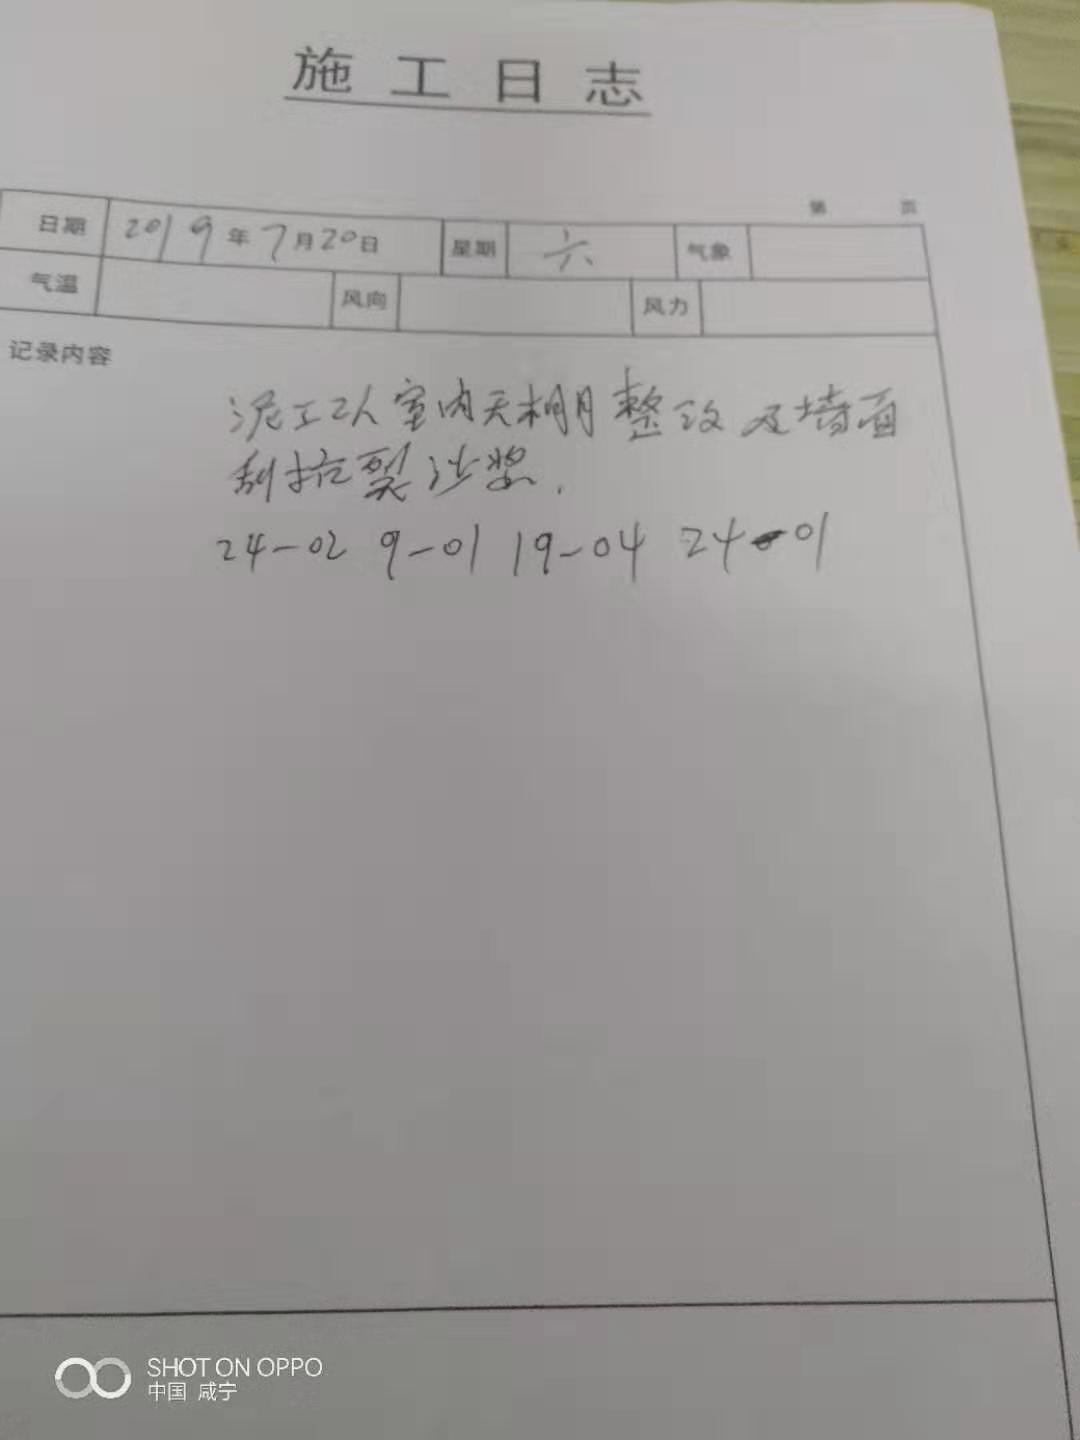 施工日志
第 页
日期 2019年7月20日 星期 六 气象
气温 风向 风力
记录内容
泥工2人室内天棚整改及墙面
刮抗裂沙浆.
24-02 9-01 19-04 24-01
SHOT ON OPPO
中国 咸宁